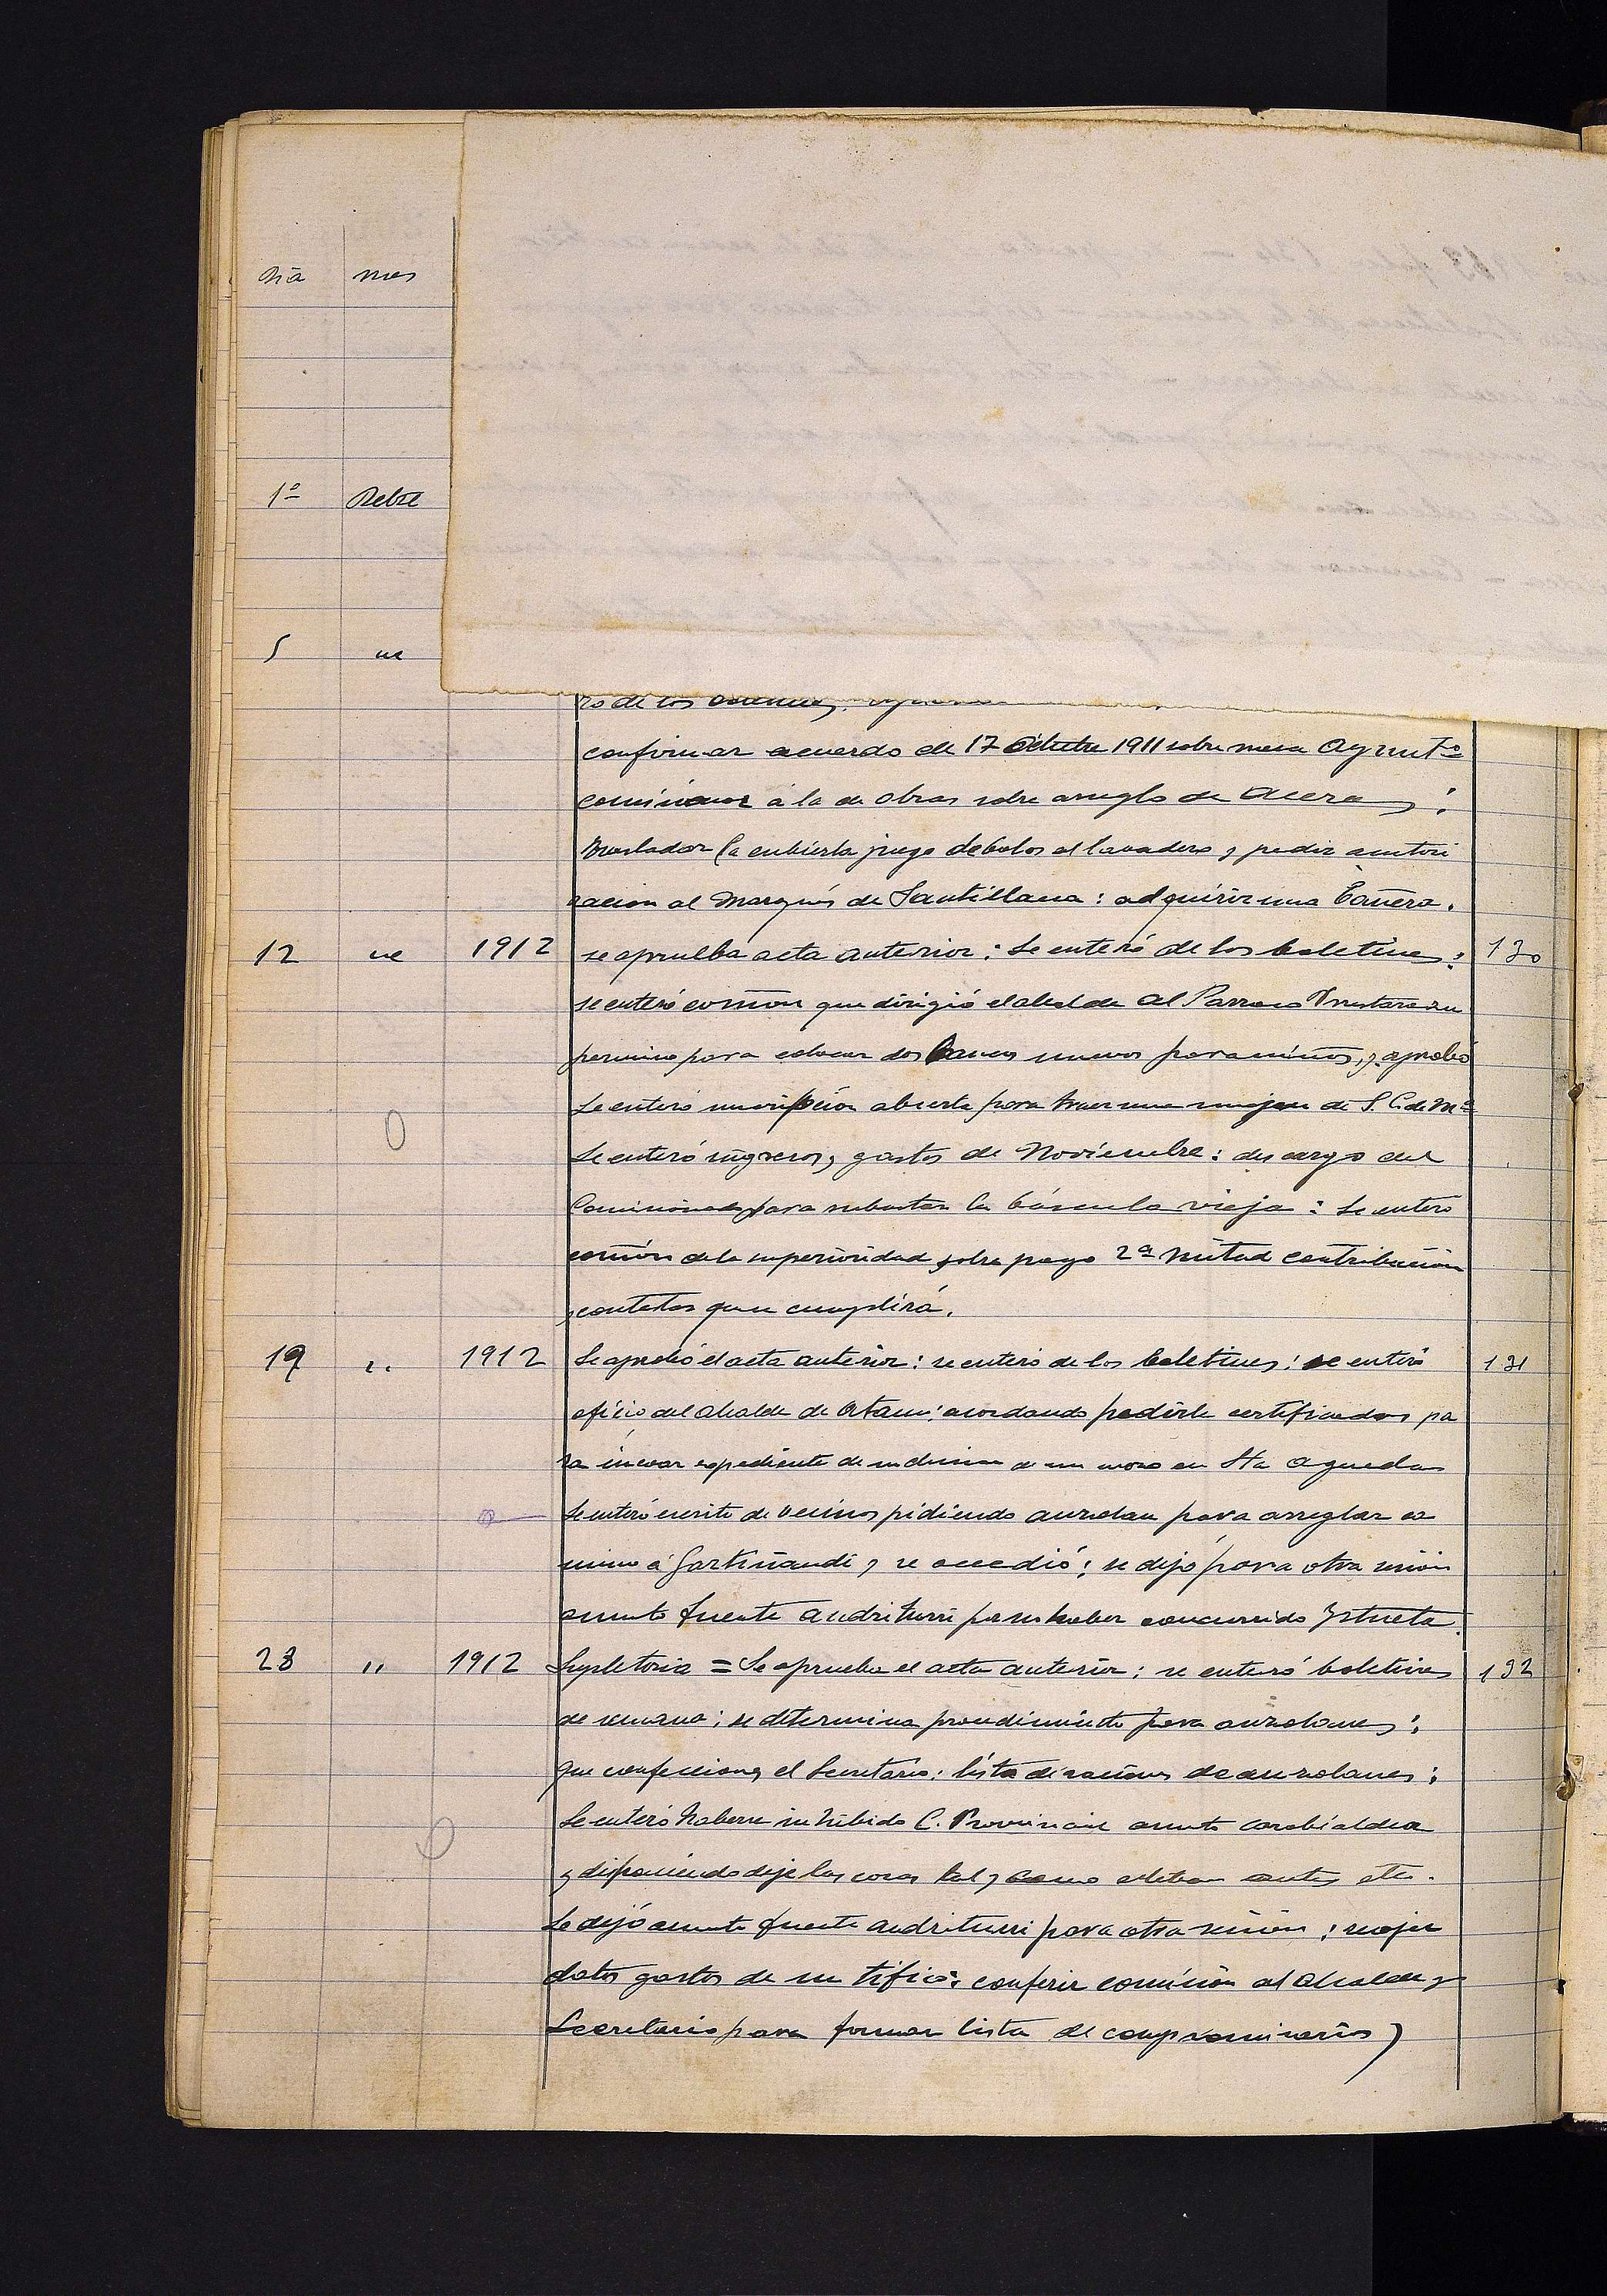 Dia mes
1º Dcbre
5 "
ro de los
confirmar acuerdo de 17 Octubre 1911 sobre mesa Ayuntº
comisionar á la de obras sobre arreglo de aceras;
trasladar la cubierta juego de bolos al lavadero y pedir autori
zacion al Marqués de Santillana: adquirir una bañera.
12 " 1912 se aprueba acta anterior: Se enteró de los boletines: 130
se enteró comón que dirigió el alcalde al Parroco
permiso para colocar dos bancos nuevos para niños, y aprobó
Se enteró suscripción abierta para traer una imajen de S. C. de Mª
Se enteró ingresos y gastos de Noviembre: descargo del
Comisionado para subastar la báscula vieja: Se enteró
comón de la superioridad sobre pago 2ª mitad contribución
y contestar que se cumplirá.
19 " 1912 Se aprobó el acta anterior: se enteró de los boletines: se enteró 131
oficio del alcalde de acordando pedirle certificados pa
ra incoar expediente de reclusion de un mozo en Sta Agueda
Se enteró escrito de vecinos pidiendo auzolan para arreglar ca
mino á Gartiñandi y se accedió: se dejó para otra sesión
asunto fuente Andriturri por no haber concurrido Iztueta.
28 " 1912 Supletoria = Se aprueba el acta anterior: se enteró boletines 132
de semana: se determina procedimiento para auzolanes:
que confecciones el Secretario: lista de raciones de auzolanes:
Se enteró haberse inhibido C. Provincial asunto
y disponiendo deje las cosas tal y como estaban antes etc.
Se dejó asunto fuente Andriturri para otra sesión: recojer
datos gastos de un tifico: conferir comisión al Alcalde y
Secretario para formar lista de compromisarios)